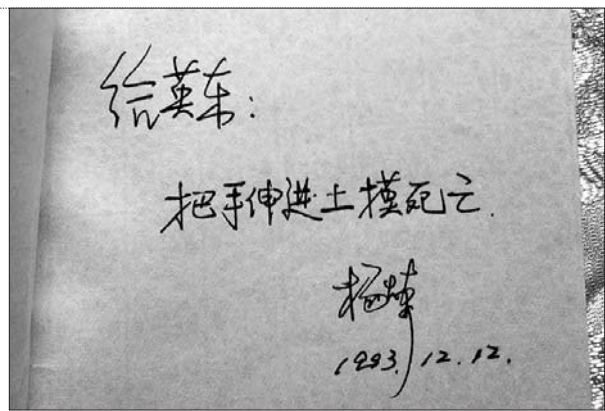 给英东:
把手伸进土摸死亡.
杨炼
1993.12.12.